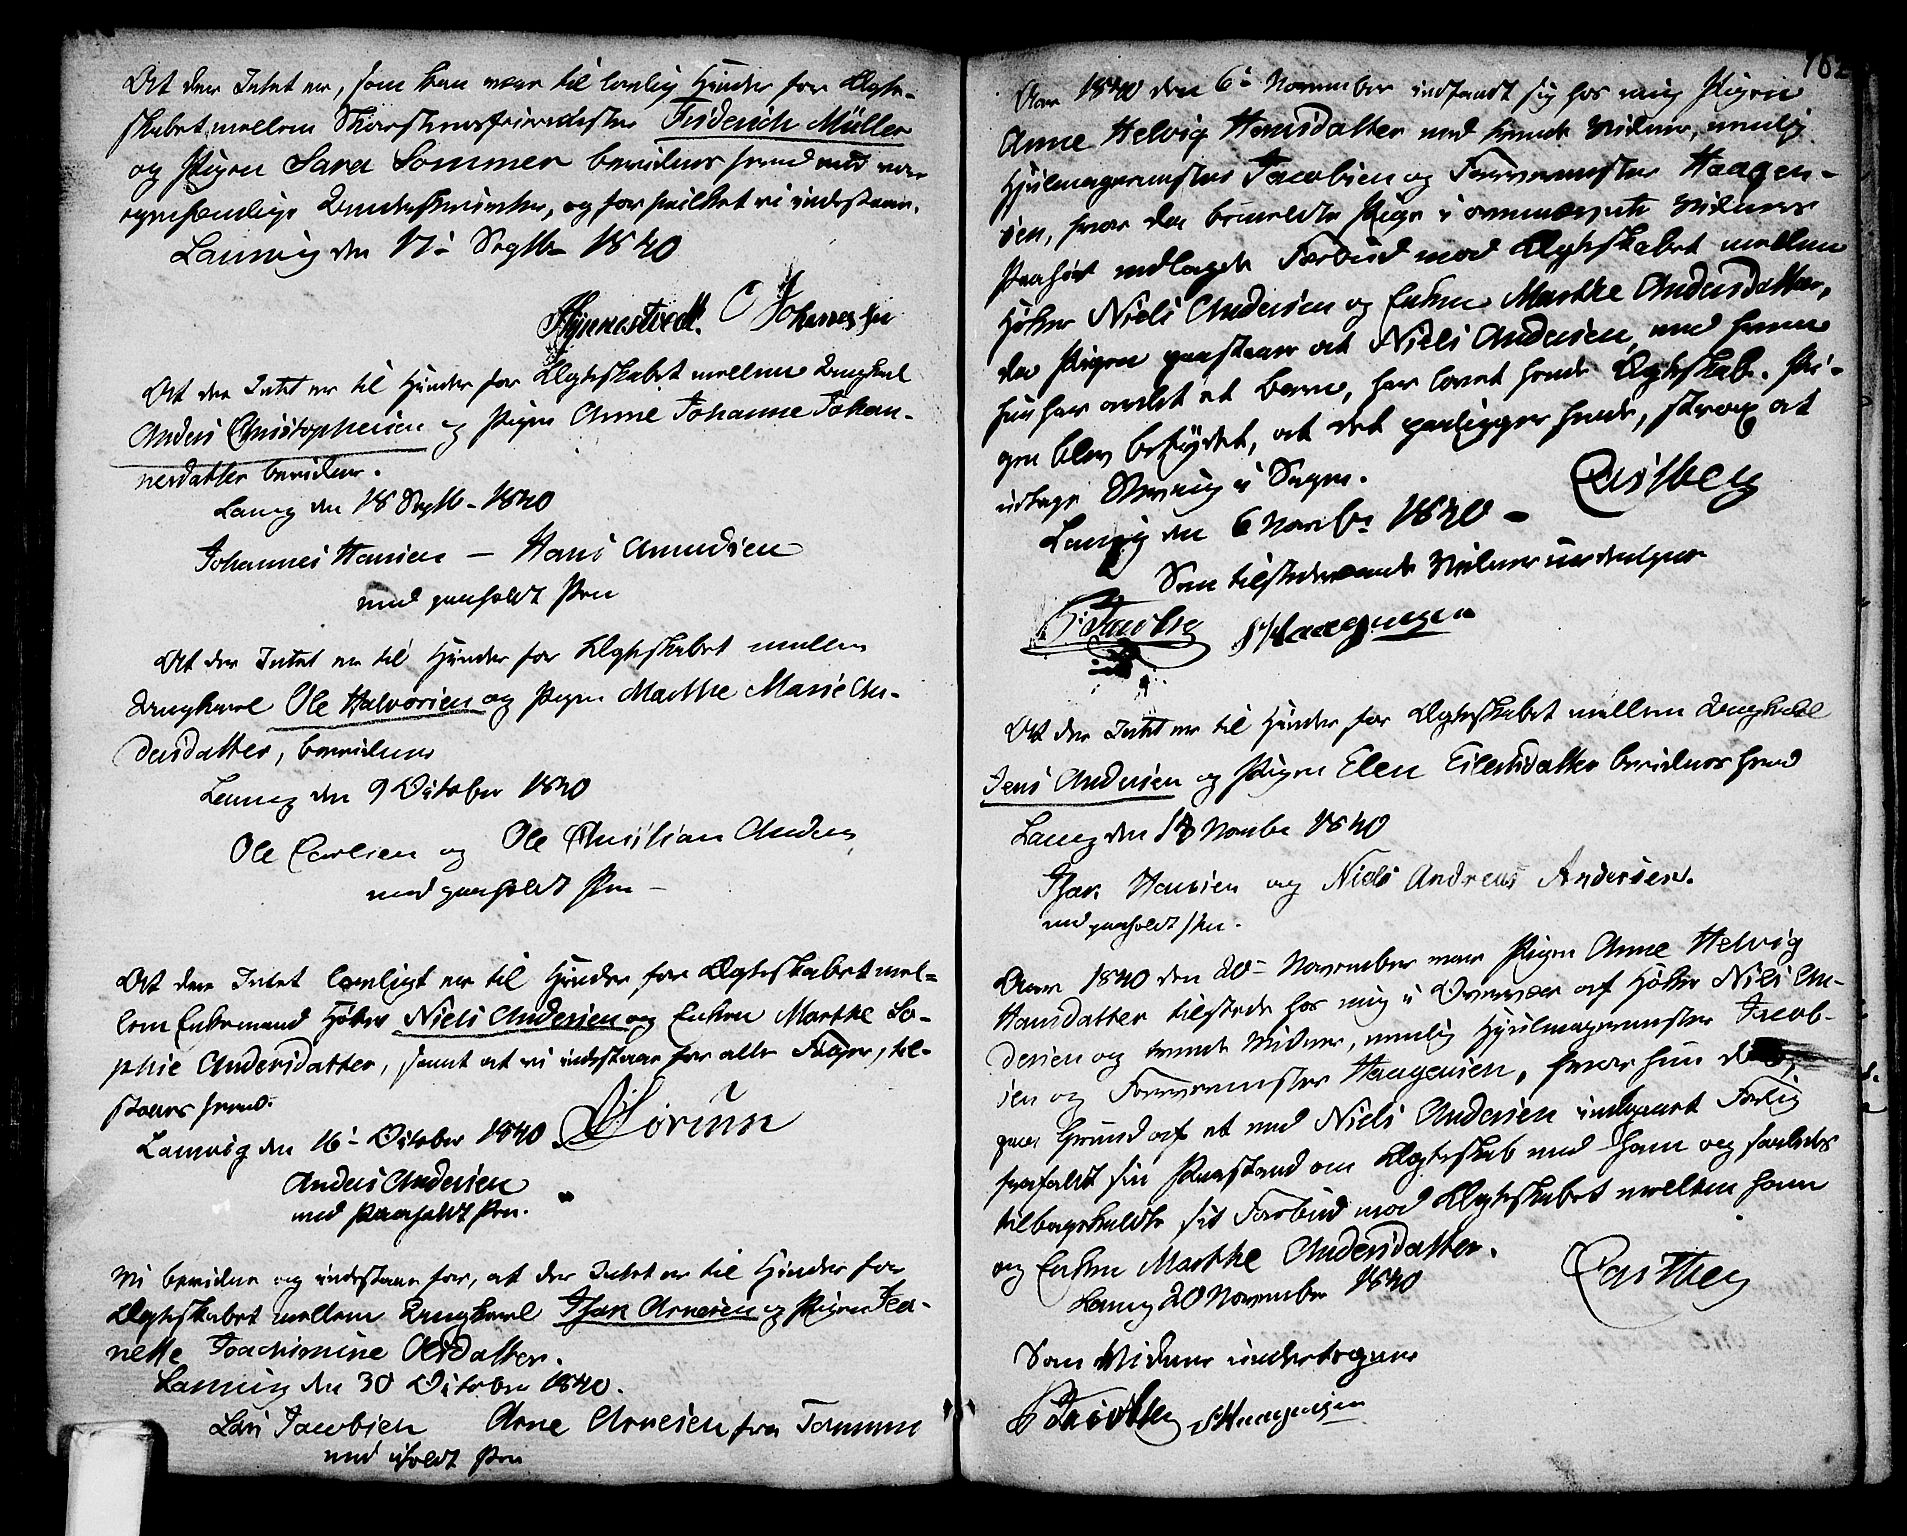 At der Intet er, som kan være til lovlig Hinder for Ægte-
skabet mellem Skorsteensfeiermester Friderich Müller
og Pigen Sara Sommer bevidnes herved med vor
egenhændige Underskrivter, og for hvilket vi indestaae.
Laurvig den 17de Septb. 1840
Johannesen
At der Intet er til Hinder for Ægteskabet mellem Ungkarl
Anders Christophersen og Pigen Anne Johanne Johan-
nesdatter bevidnes.
Laurvig den 18 Septb. 1840
Johannes Hansen — Hans Amundsen
med paaholdt Pen
At der Intet er til Hinder for Ægteskabet mellem
Ungkarl Ole Halvorsen og Pigen Marthe Marie An-
dersdatter, bevidnes
Laurvig den 9 October 1840
Ole Carlsen og Ole Christian Anders
med paaholdt Pen —
At der Intet lovligt er til Hinder for Ægteskabet mel-
lem Enkemand Høker Niels Andersen og Enken Marthe So-
phie Andersdatter, samt at vi indestaae for alle Følger, til-
staaes herved.
Laurvig den 16de October 1840
Anders Andersen
med Paaholdt Pen.
Vi bevidne og indestaae for, at der Intet er til Hinder for
Ægteskabet mellem Ungkarl Isak Arnesen og Pigen Jea-
nette Joachimine Olsdatter.
Laurvig den 30 October 1840.
Lars Jacobsen Arne Arnesen fra
med iholdt Pen
162
Aar 1840 den 6te November indfandt sig hos mig Pigen
Anne Helvig Hansdatter med tvende Vidner, nemlig
Hjulmagermester Jacobsen og Farvermester Haagen-
sen, hvor da bemeldte Pige i ommeldte Vidners
Paahør nedlagde Forbud mod Ægteskabet mellem
Høker Niels Andersen og Enken Marthe Andersdatter,
da Pigen paastaar at Niels Andersen, med hvem
hun har avlet et Barn, har lovet hende Ægteskab. Pi-
gen blev betydet, at det paaligger hende, strax at
udtage Stevning i Sagen.
Laurvig den 6 Novbr 1840 — Castberg
Som tilstedeværende Vidner undertegner
Jacobsen Haagensen
At der Intet er til Hinder for Ægteskabet mellem Ungkarl
Jens Andersen og Pigen Elen Eilertsdatter bevidnes herved
Laurvig den 13 Novbr 1840
Isak Hansen og Niels Andreas Andersen.
med paaholdt Pen.
Aar 1840 den 20de November var Pigen Anne Helvig
Hansdatter tilstede hos mig i Overvær af Høker Niels An-
dersen og tvende Vidner, nemlig Hjulmagermester Jacob-
sen og Farvermester Haagensen, hvor hun
paa Grund af et med Niels Andersen indgaaet Forlig
frafaldt sin Paastand om Ægteskab med ham og saaledes
tilbagekaldte sit Forbud mod Ægteskabet mellem ham
og Enken Marthe Andersdatter.
Laurvig 20 November 1840 Castberg
Som Vidner undertegne
Jacobsen Haagensen